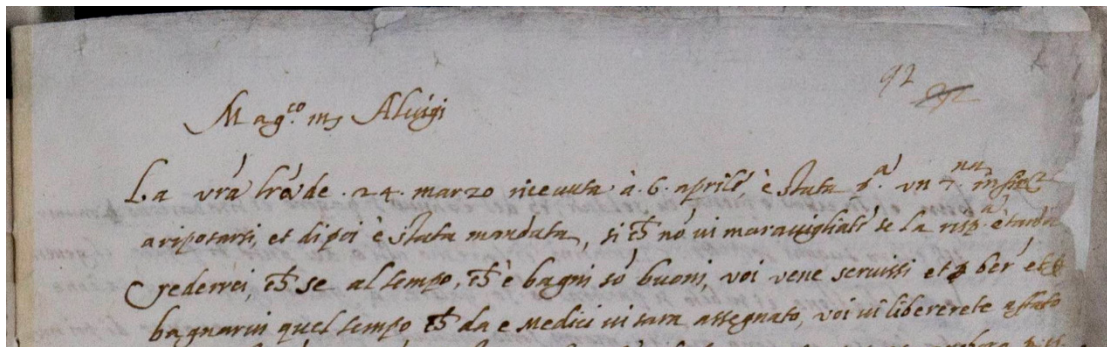 92
Mag.co ms Aluigi
La vr̃a lr̃a de .24. marzo riceuuta à .6. aprile, è stata p.a un
ariposarsi, et dipoi è stata mandata, si ch̃ nõ ui marauigliate se la risp.a è tarda
crederrei, ch̃ se al tempo, ch̃ è bagni sõ buoni, voi vene seruissi et p ber et
bagnarui quel tempo ch̃ da e Medici ui sara assegnato, voi ui libererete affatto